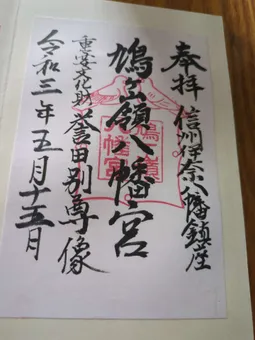 奉拝 信州伊奈八幡鎮座
鳩ヶ嶺八幡宮
鳩ヶ嶺八幡宮
重要文化財 誉田別尊像
令和三年五月十五日